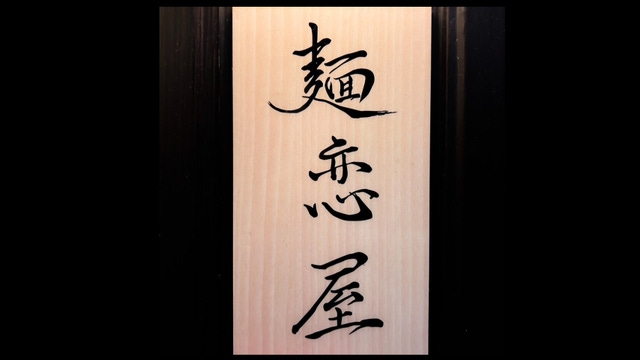 麺恋屋